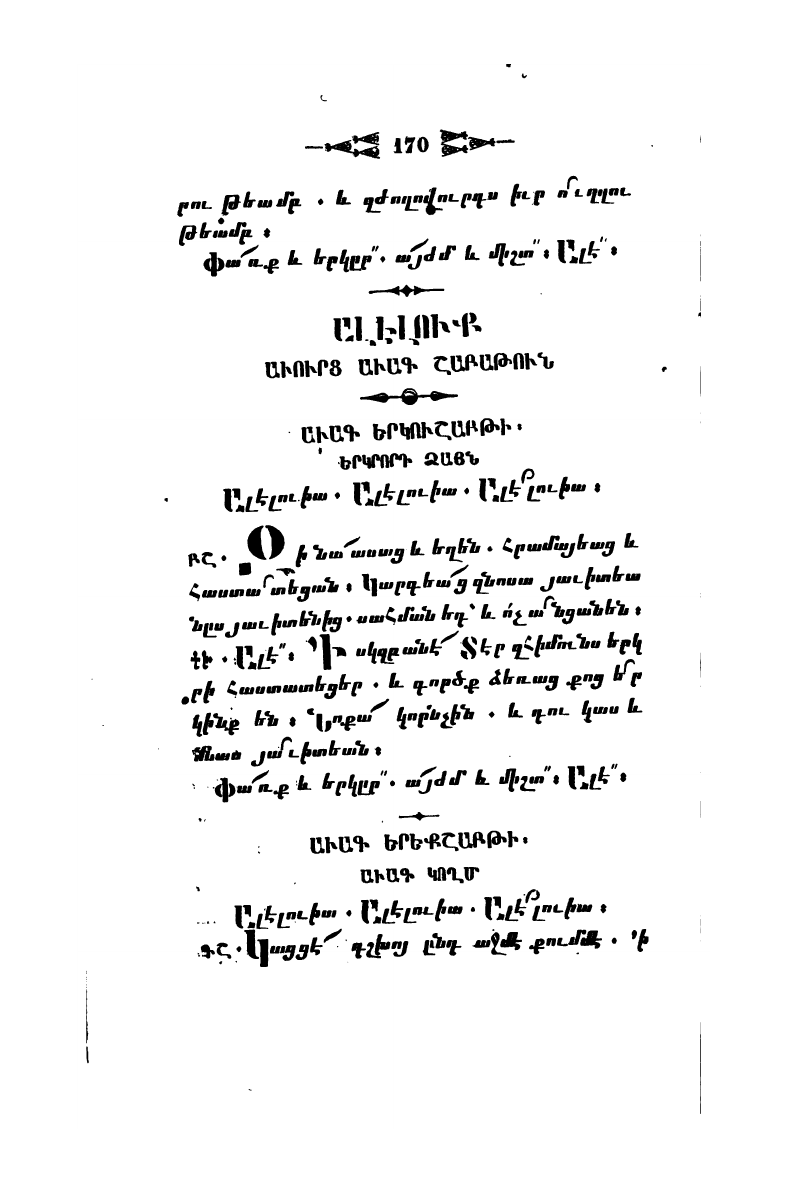 170
րու թեամբ . և զժողովուրդս իւր ո՜ւղղու
թե՛ամբ ։
Փա՜ռք և երկըր՞. ա՜յժմ և միշտ՞։ Ալէ՞։
ԱԼԷԼՈՒՔ
ԱՒՈՒՐՑ ԱՒԱԳ ՇԱԲԱԹՈՒՆ
ԱՒԱԳ ԵՐԿՈՒՇԱԲԹԻ.
ԵՐԿՐՈՐԴ ՁԱՅՆ
Ալէլուիա . Ալէլուիա . Ալէ՜լուիա ։
ԲՇ. Զի նա՜ ասաց և եղեն . Հրամայեաց և
Հաստա՜տեցան ։ Կարգեա՜ց զնոսա յաւիտեա
նըս յաւիտենից. սահման եդ՝ և ո՛չ ա՜նցանեն ։
էի . Ալէ՞։ Ի սկզբանէ՜ Տէր զհիմունս երկ
րի Հաստատեցեր . և գործք ձեռաց քոց ե՜ր
կինք են ։ Նոքա՜ կորնչին . և դու կաս և
մնաս յա՜ւիտեան ։
Փա՜ռք և երկըր՞. ա՜յժմ և միշտ՞։ Ալէ՞։
ԱՒԱԳ ԵՐԵՔՇԱԲԹԻ.
ԱՒԱԳ ԿՈՂՄ
Ալէլուիա . Ալէլուիա . Ալէ՜լուիա ։
ԳՇ. Կացցէ՜ դշխոյ ընդ աջմէ քումմէ . ՚ի